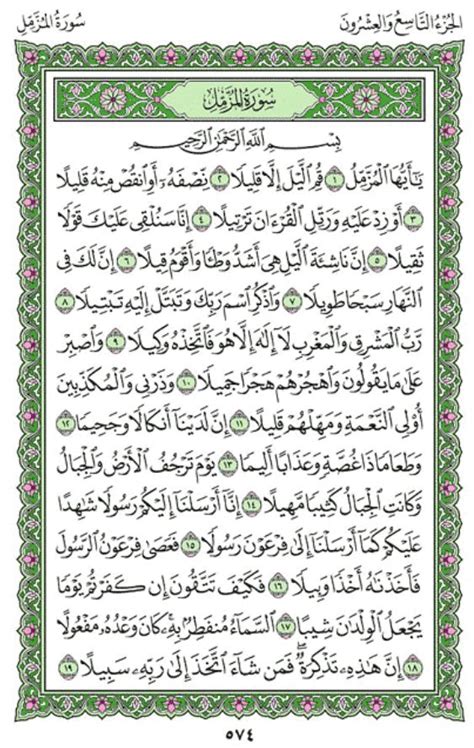 الجزء التاسع والعشرون
سورة المزمل
سورة المزمل
بسم الله الرحمن الرحيم
يَٰٓأَيُّهَا ٱلْمُزَّمِّلُ ١ قُمِ ٱلَّيْلَ إِلَّا قَلِيلًا ٢ نِّصْفَهُۥٓ أَوِ ٱنقُصْ مِنْهُ قَلِيلًا
٣ أَوْ زِدْ عَلَيْهِ وَرَتِّلِ ٱلْقُرْءَانَ تَرْتِيلًا ٤ إِنَّا سَنُلْقِى عَلَيْكَ قَوْلًا
ثَقِيلًا ٥ إِنَّ نَاشِئَةَ ٱلَّيْلِ هِىَ أَشَدُّ وَطْـًٔا وَأَقْوَمُ قِيلًا ٦ إِنَّ لَكَ فِى
ٱلنَّهَارِ سَبْحًا طَوِيلًا ٧ وَٱذْكُرِ ٱسْمَ رَبِّكَ وَتَبَتَّلْ إِلَيْهِ تَبْتِيلًا ٨
رَّبُّ ٱلْمَشْرِقِ وَٱلْمَغْرِبِ لَآ إِلَٰهَ إِلَّا هُوَ فَٱتَّخِذْهُ وَكِيلًا ٩ وَٱصْبِرْ
عَلَىٰ مَا يَقُولُونَ وَٱهْجُرْهُمْ هَجْرًا جَمِيلًا ١٠ وَذَرْنِى وَٱلْمُكَذِّبِينَ
أُو۟لِى ٱلنَّعْمَةِ وَمَهِّلْهُمْ قَلِيلًا ١١ إِنَّ لَدَيْنَآ أَنكَالًا وَجَحِيمًا ١٢
وَطَعَامًا ذَا غُصَّةٍ وَعَذَابًا أَلِيمًا ١٣ يَوْمَ تَرْجُفُ ٱلْأَرْضُ وَٱلْجِبَالُ
وَكَانَتِ ٱلْجِبَالُ كَثِيبًا مَّهِيلًا ١٤ إِنَّآ أَرْسَلْنَآ إِلَيْكُمْ رَسُولًا شَٰهِدًا
عَلَيْكُمْ كَمَآ أَرْسَلْنَآ إِلَىٰ فِرْعَوْنَ رَسُولًا ١٥ فَعَصَىٰ فِرْعَوْنُ ٱلرَّسُولَ
فَأَخَذْنَٰهُ أَخْذًا وَبِيلًا ١٦ فَكَيْفَ تَتَّقُونَ إِن كَفَرْتُمْ يَوْمًا
يَجْعَلُ ٱلْوِلْدَٰنَ شِيبًا ١٧ ٱلسَّمَآءُ مُنفَطِرٌۢ بِهِۦ ۚ كَانَ وَعْدُهُۥ مَفْعُولًا
١٨ إِنَّ هَٰذِهِۦ تَذْكِرَةٌ ۖ فَمَن شَآءَ ٱتَّخَذَ إِلَىٰ رَبِّهِۦ سَبِيلًا ١٩
٥٧٤